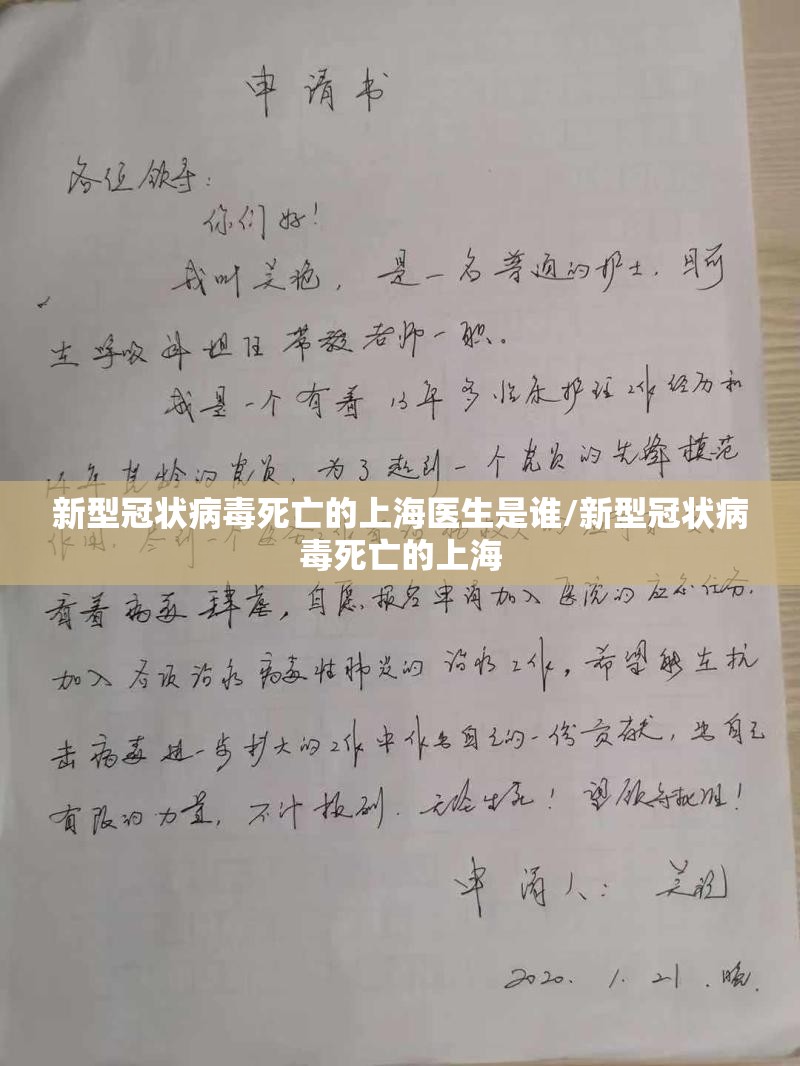 申请书
各位领导:
你们好!
我叫吴艳,是一名普通的护士.目前
在呼吸科担任带教老师一职。
我是一个有着13年多临床护理工作经历和
年党龄的党员,为了起到一个党员的先锋模范
作用.尽到一个
新型冠状病毒死亡的上海医生是谁/新型冠状病
毒死亡的上海
看着病毒肆虐,自愿报名申请加入医院的应急任务.
加入各项治疗病毒性肺炎的治疗工作。希望能在抗
击病毒进一步扩大的工作中作出自己的一份贡献,出自己
有限的力量,不计报酬.无论生死!望领导批准!
申请人:吴艳
2020.1.21.晚.